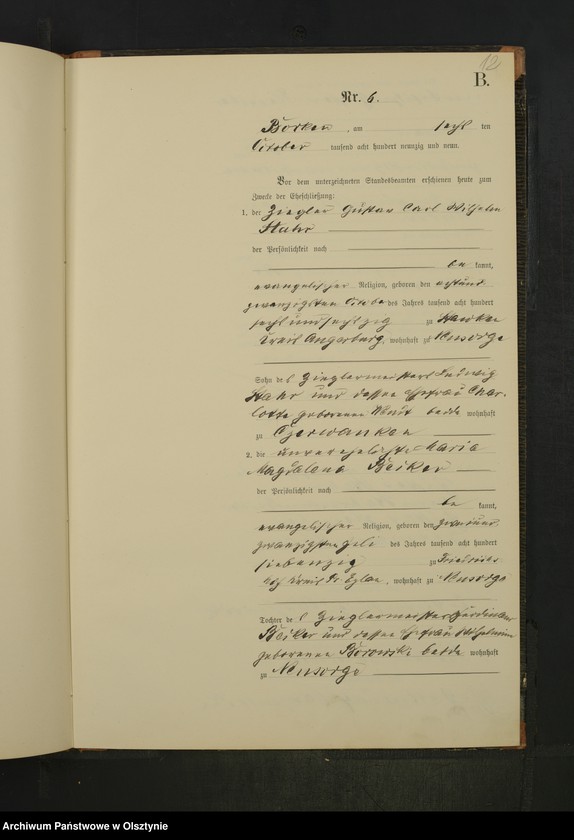 12
B.
Nr. 6.
Borken, am sechs ten
October tausend acht hundert neunzig und neun.
Vor dem unterzeichneten Standesbeamten erschienen heute zum
Zwecke der Eheschließung:
1. der Ziegler Gustav Carl Wilhelm
Stahr
der Persönlichkeit nach
be kannt,
evangelischer Religion, geboren den achtund
zwanzigsten Octobe des Jahres tausend acht hundert
sechsundsechzig zu
Kreis Angerburg, wohnhaft zu Neusorge
Sohn des Zieglermeisters Ludwig
Stahr und dessen Ehefrau Char-
lotte geborenen Wendt beide wohnhaft
zu Czerwanken
2. die unverehelichte Maria
Magdalena Beiker
der Persönlichkeit nach
be kannt,
evangelischer Religion, geboren den zweiund
zwanzigsten Juli des Jahres tausend acht hundert
siebenzig zu Friedrichs
hof Kreis Pr. Eylau, wohnhaft zu Neusorge
Tochter des Zieglermeister Ferdinand
Beiker und dessen Ehefrau Wilhelmine
geborenen Borowski beide wohnhaft
zu Neusorge
Archiwum Państwowe w Olsztynie